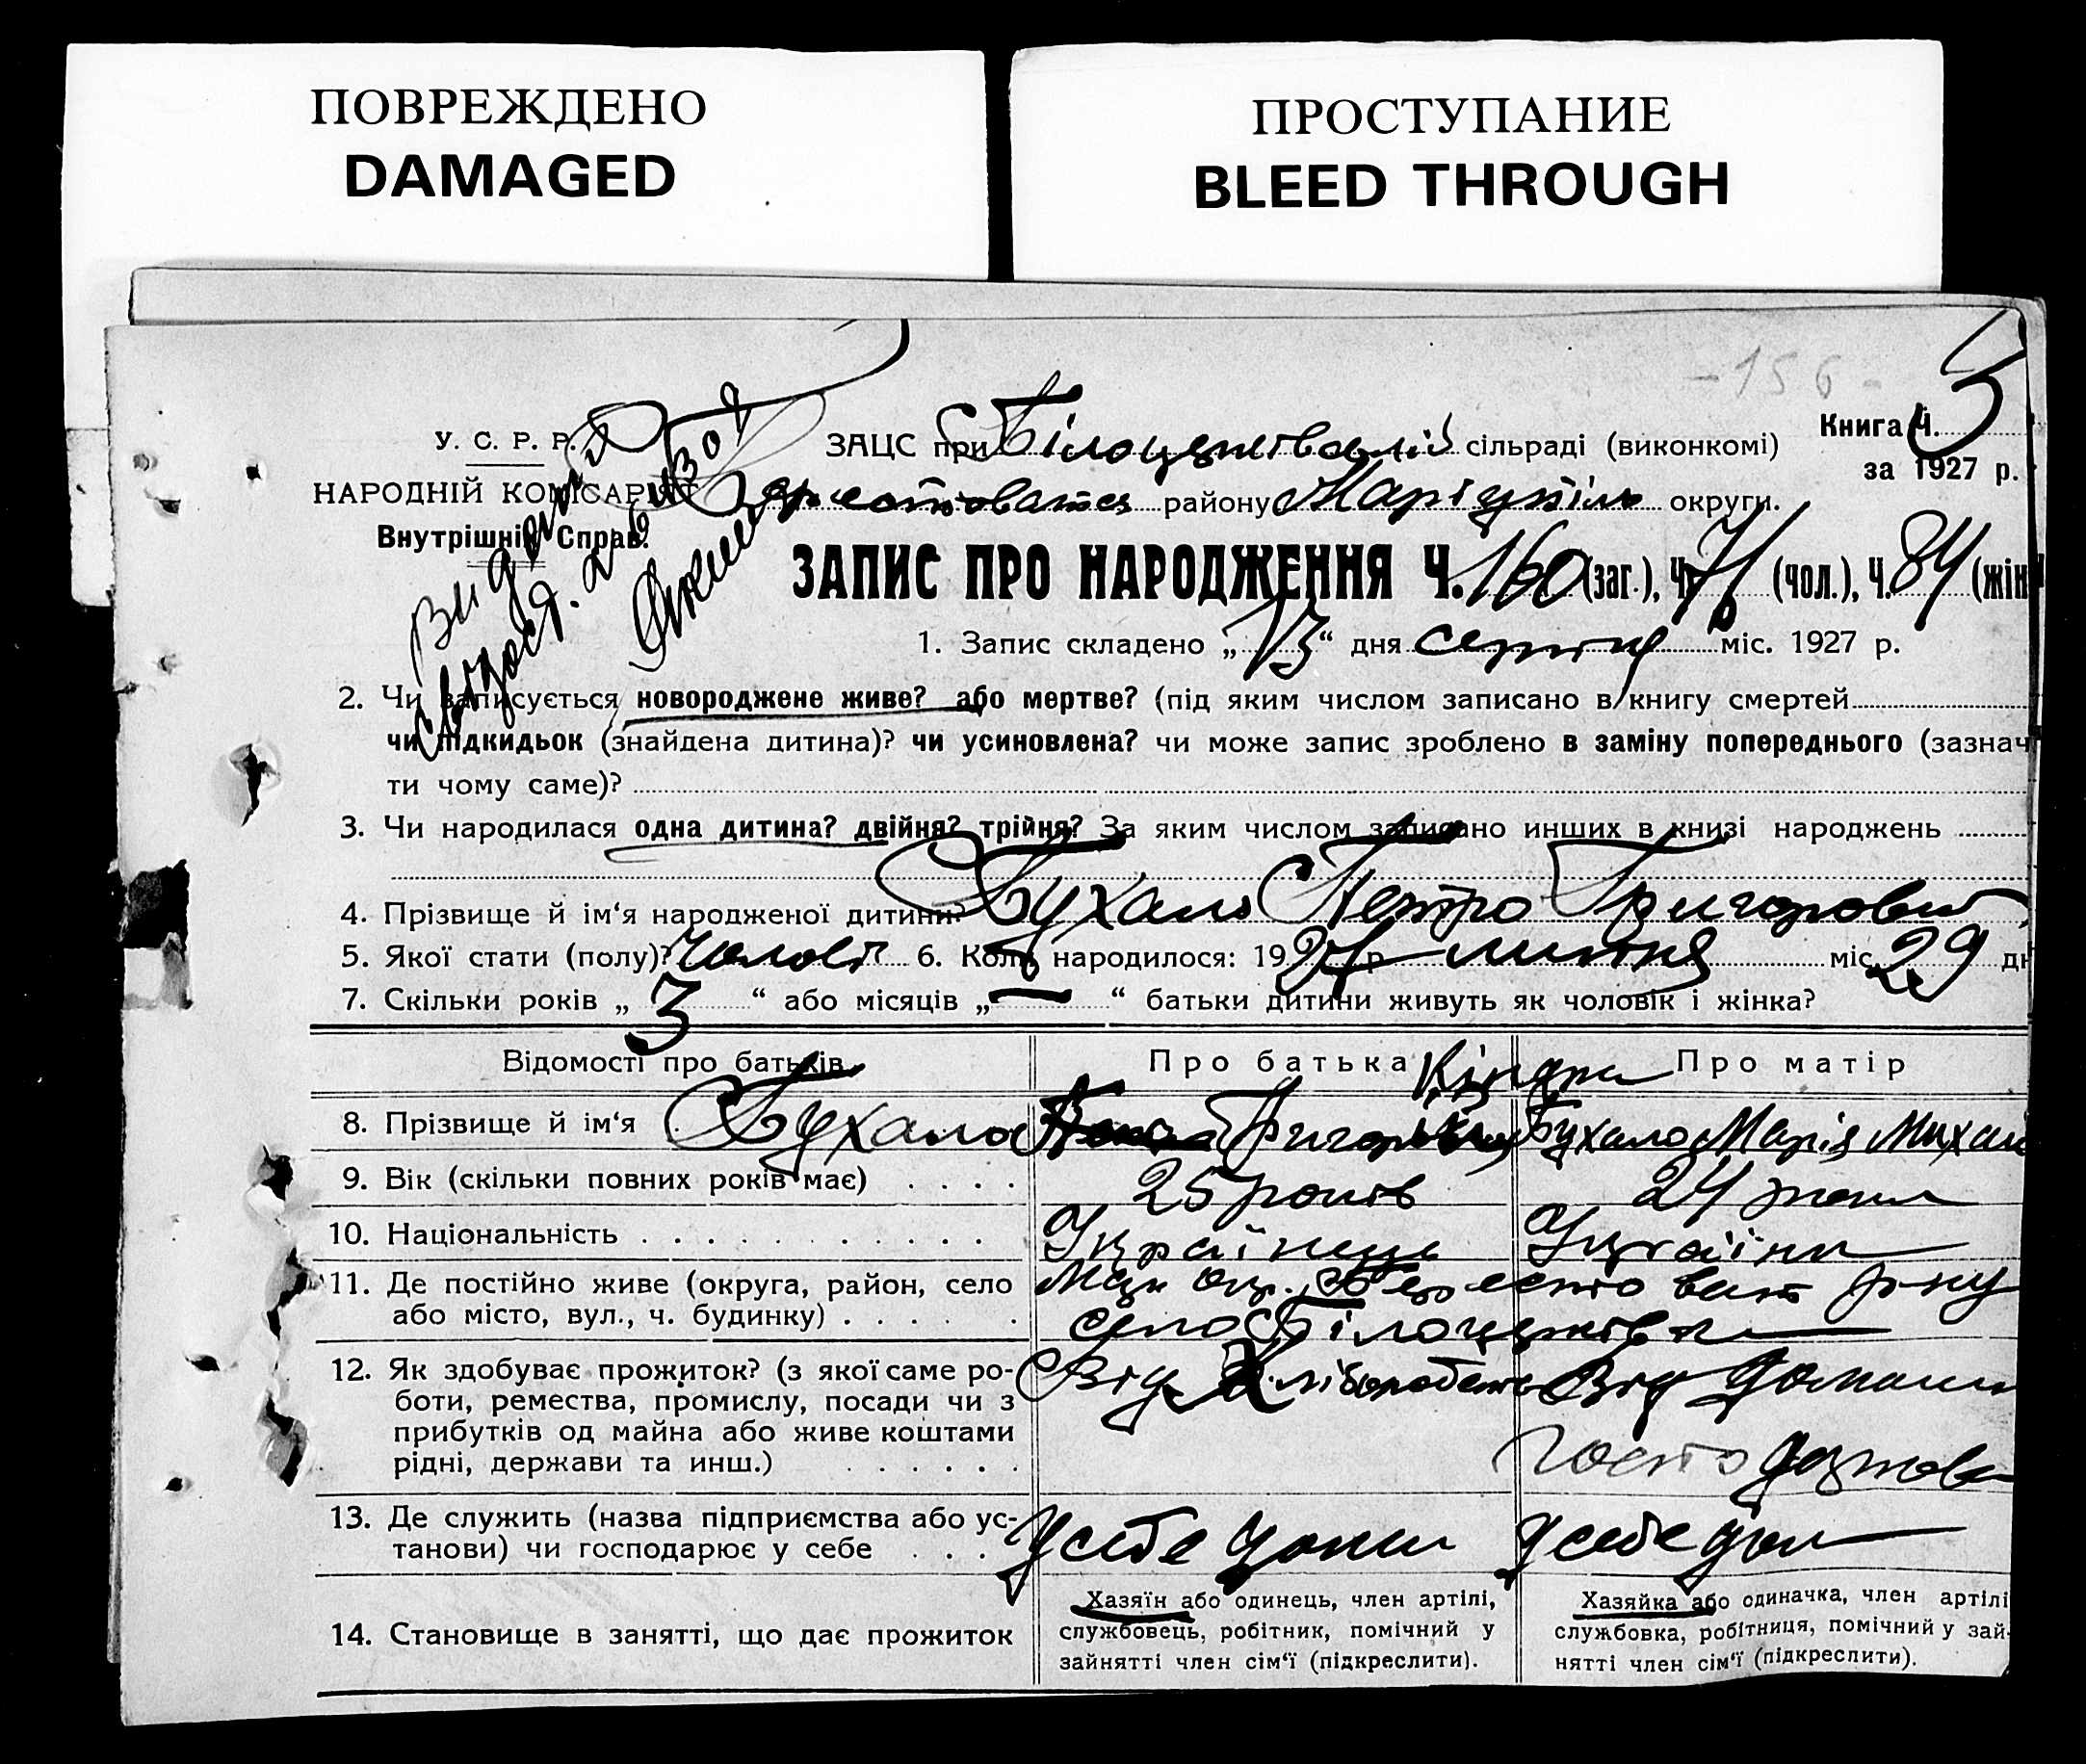 ПОВРЕЖДЕНО
DAMAGED
ПРОСТУПАНИЕ
BLEED THROUGH
- 156 -
У. С. Р. Р.
НАРОДНІЙ КОМІСАРІЯТ
Внутрішніх Справ.
Видання
ЗАЦС при Білоцерківській сільраді (виконкомі)
Книга Ч. 3
за 1927 р.
району Маріупіль округи.
ЗАПИС ПРО НАРОДЖЕННЯ Ч. 160 (заг.), Ч. 76 (чол.), Ч. 84 (жін
1. Запис складено „13“ дня серпня міс. 1927 р.
2. Чи записується новороджене живе? або мертве? (під яким числом записано в книгу смертей
чи підкидьок (знайдена дитина)? чи усиновлена? чи може запис зроблено в заміну попереднього (зазнач
ти чому саме)?
3. Чи народилася одна дитина? двійня? трійня? За яким числом записано инших в книзі народжень
4. Прізвище й ім‘я народженої дитини? Бухало Петро Григорович
5. Якої стати (полу)? чолов 6. Коли народилося: 1927 р. липня міс. 29 дн
7. Скільки років „ 3 “ або місяців „ — “ батьки дитини живуть як чоловік і жінка?
Відомості про батьків
Про батька
Про матір
8. Прізвище й ім‘я Бухало Григорій Бухало Марія Михай
9. Вік (скільки повних років має) 25 років 24 роки
10. Національність Українець Україна
11. Де постійно живе (округа, район, село
або місто, вул., ч. будинку) село Білоцерківка
12. Як здобуває прожиток? (з якої саме ро-
боти, ремества, промислу, посади чи з
прибутків од майна або живе коштами
рідні, держави та инш.)
Від Хліборобств Від домашн
господарства
13. Де служить (назва підприємства або ус-
танови) чи господарює у себе
У себе дома У себе дом
14. Становище в занятті, що дає прожиток
Хазяїн або одинець, член артілі,
службовець, робітник, помічний у
зайнятті член сім‘ї (підкреслити).
Хазяйка або одиначка, член артілі
службовка, робітниця, помічний у зай-
нятті член сім‘ї (підкреслити).